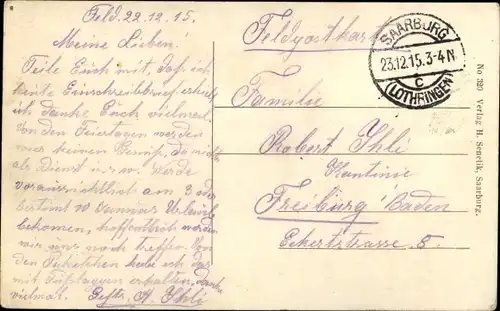 Feld. 22.12.15.
Meine Lieben!
Teile Euch mit, daß ich
heute Einschreibbrief erhielt
ich danke Euch vielmal.
Von den Feiertagen werden
wir keinen Genuß, da nichts
als Dienst u.s.w. Werde
voraussichtlich am 3 oder
bestimt 10 Januar Urlaub
bekommen, hoffentlich werden
wir uns noch treffen. Von
den Päcketchen habe ich das
mit Fußlappen erhalten, danke
vielmal. Gefr. A. Ihli
Feldpostkarte
SAARBURG
23.12.15.3-4N
c
(LOTHRINGEN)
Familie
Robert Ihli
Kantine
Freiburg Baden
Eckertstrasse 8.
No 320 Verlag H. Senelik, Saarburg.